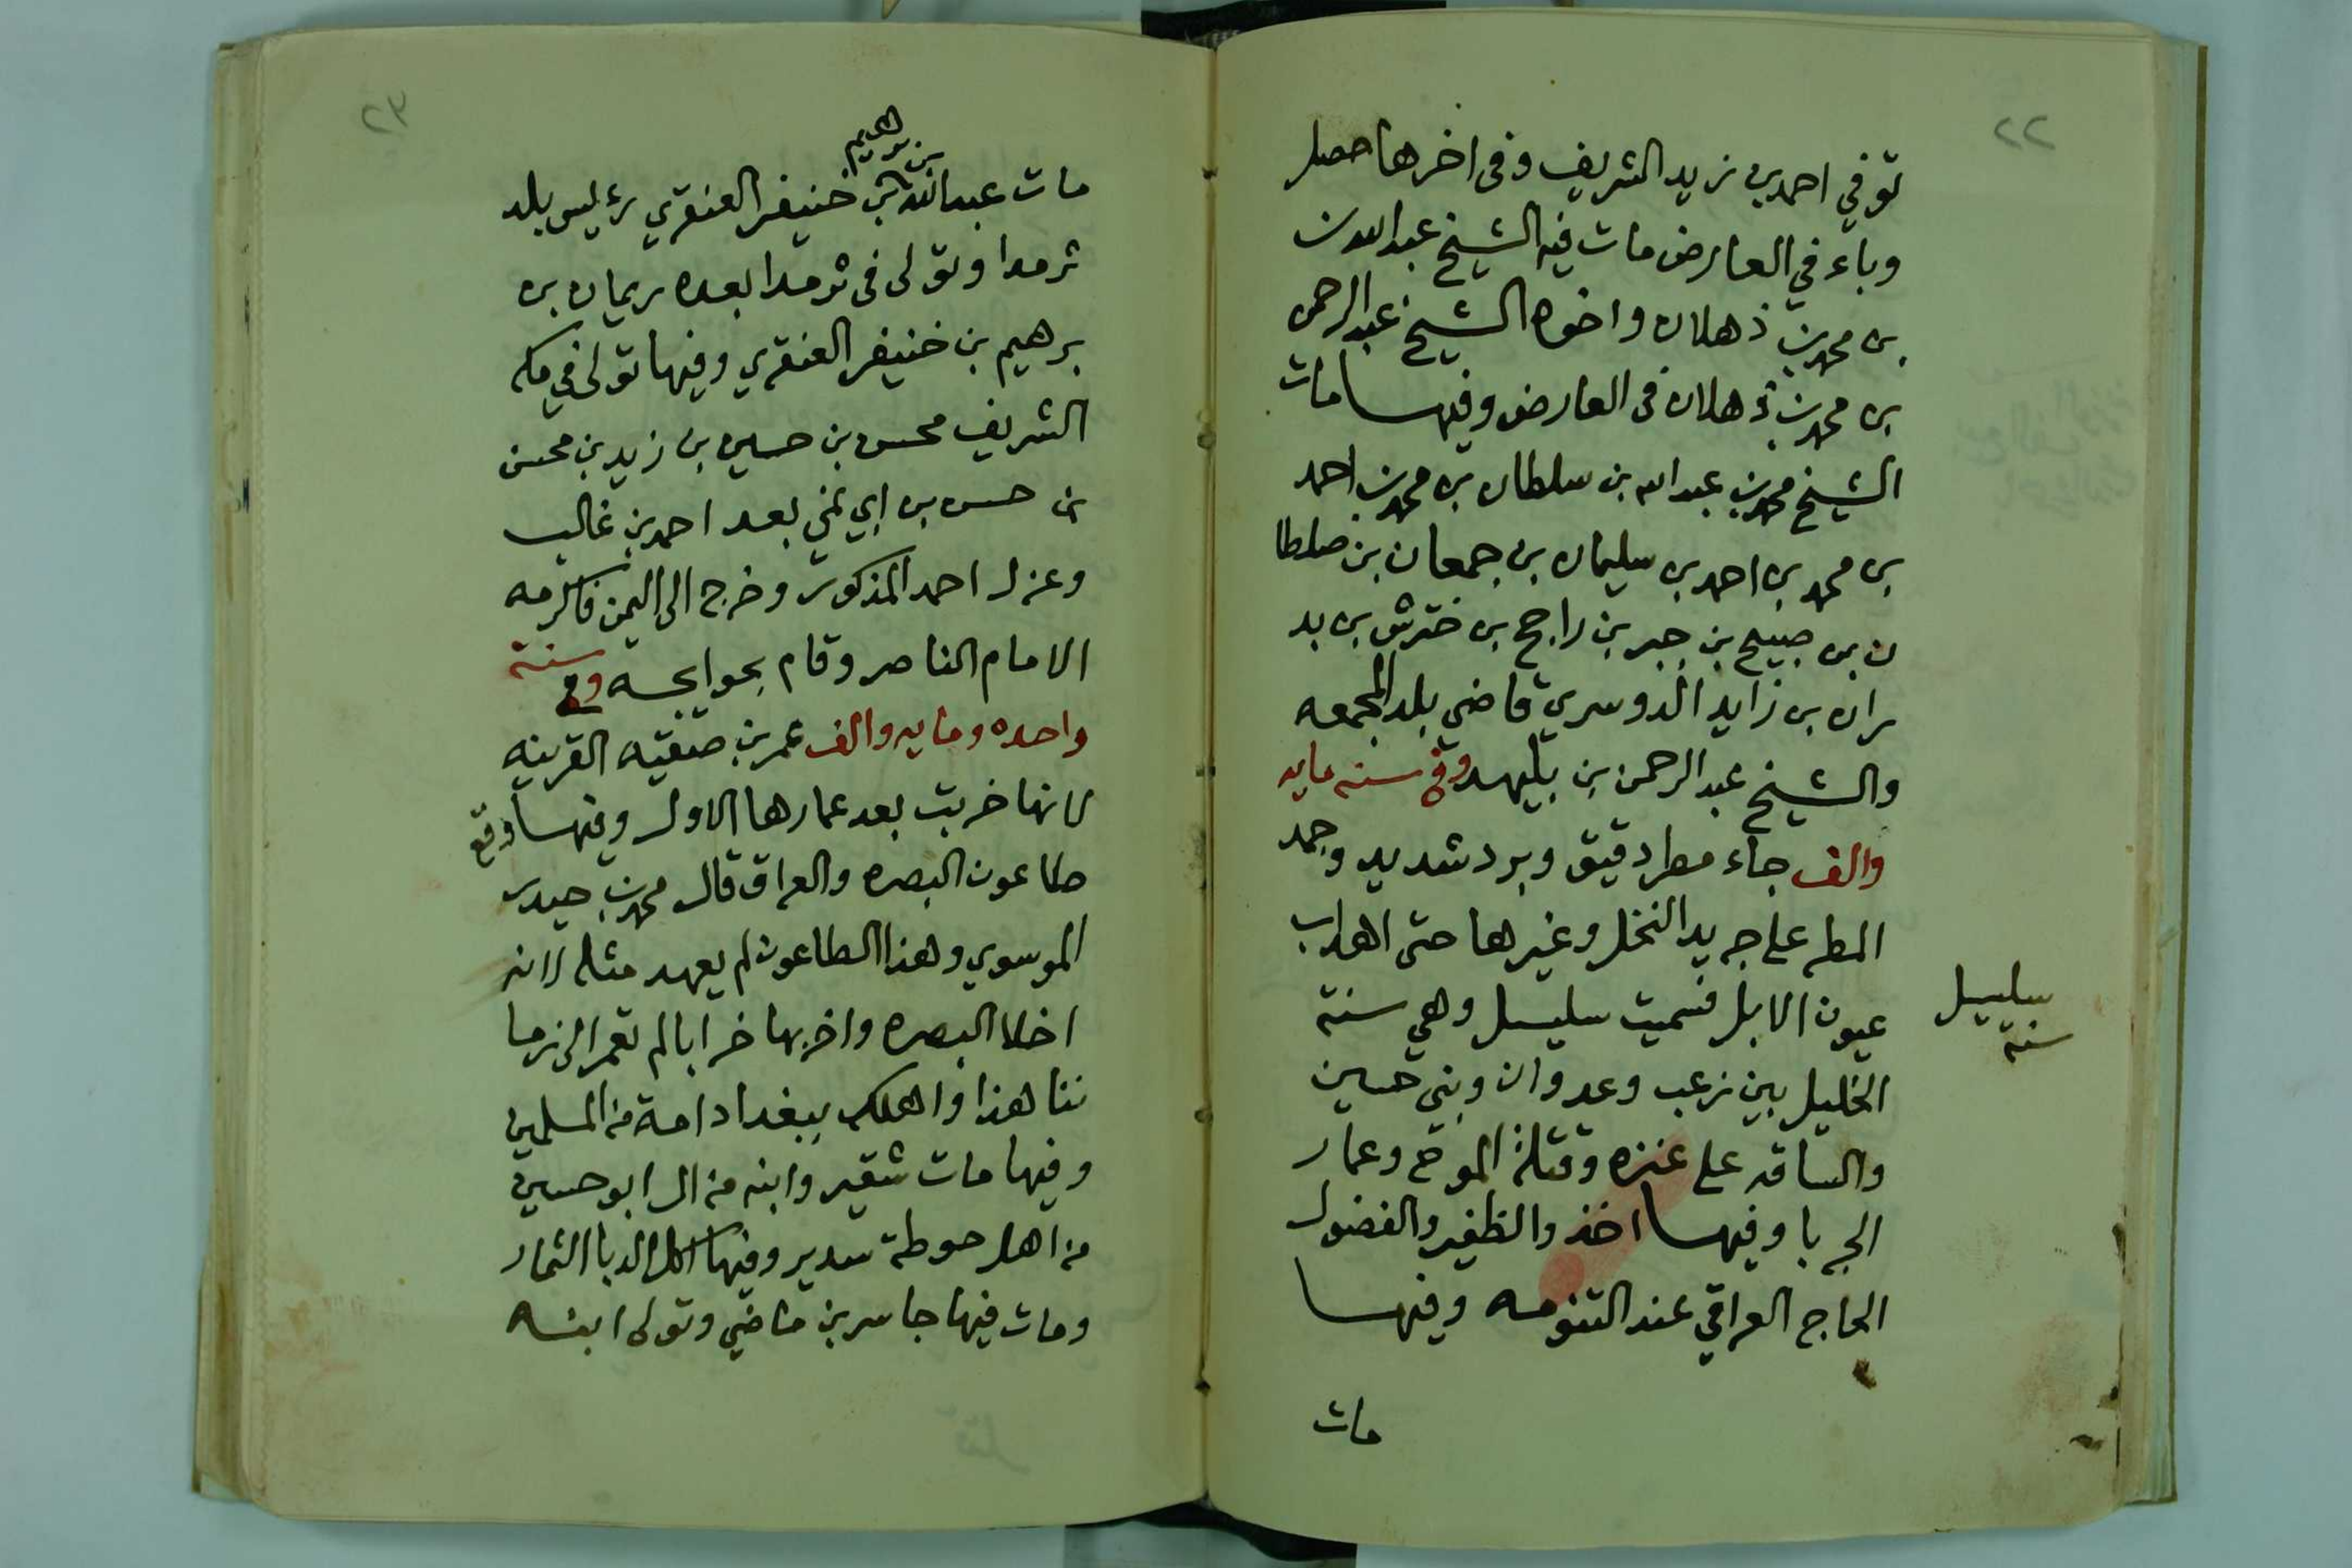 ٢٢
توفي احمد بن زيد الشريف وفي اخرها حصل
وباء في العارض مات فيه الشيخ عبدالله بن
بن محمد بن ذهلان واخوه الشيخ عبدالرحمن
بن محمد بن ذهلان في العارض وفيها مات
الشيخ محمد بن عبدالله بن سلطان بن محمد بن احمد
بن محمد بن احمد بن سليمان بن جمعان بن صلطا
ن بن صبيح بن جبر بن راجح بن خترش بن بد
ران بن زايد الدوسري قاضي بلد المجمعه
والشيخ عبدالرحمن بن بليهد وفي سنه مايه
والف جاء مطر دقيق وبرد شديد وجمد
المطر على جريد النخل وغيرها حتى اهداب
عيون الابل فسميت سليسل وهي سنة
سليسل
سنة
الخليل بين زعب وعدوان وبني حسين
والساقه على عنزه وقتلة الموح وعمار
الجربا وفيها اخذ والظفير والفضول
الحاج العراقي عند التنومه وفيها
مات
٢٣
بن برهيم
مات عبدالله بن خنيفر العنقري رئيس بلد
ثرمدا وتولى في ثرمدا بعده ريمان بن
برهيم بن خنيفر العنقري وفيها تولى في مكه
الشريف محسن بن حسين بن زيد بن محسن
بن حسن بن ابي نمي بعد احمد بن غالب
وعزل احمد المذكور وخرج الى اليمن فاكرمه
الامام الناصر وقام بحوايجه وفي سنة
واحده ومايه والف عمر بن صنقيه القرينه
لانها خربت بعد عمارها الاول وفيها وقع
طاعون البصره والعراق قال محمد بن حيدر
الموسوي وهذا الطاعون لم يعهد مثله لانه
اخلا البصره واخربها خرابا لم تعمر الى زما
ننا هذا واهلك ببغداد امة من المسلمين
وفيها مات شقير وابنه من ال ابو حسين
من اهل حوطة سدير وفيها اكل الدبا الثمار
ومات فيها جاسر بن ماضي وتولى ابنه